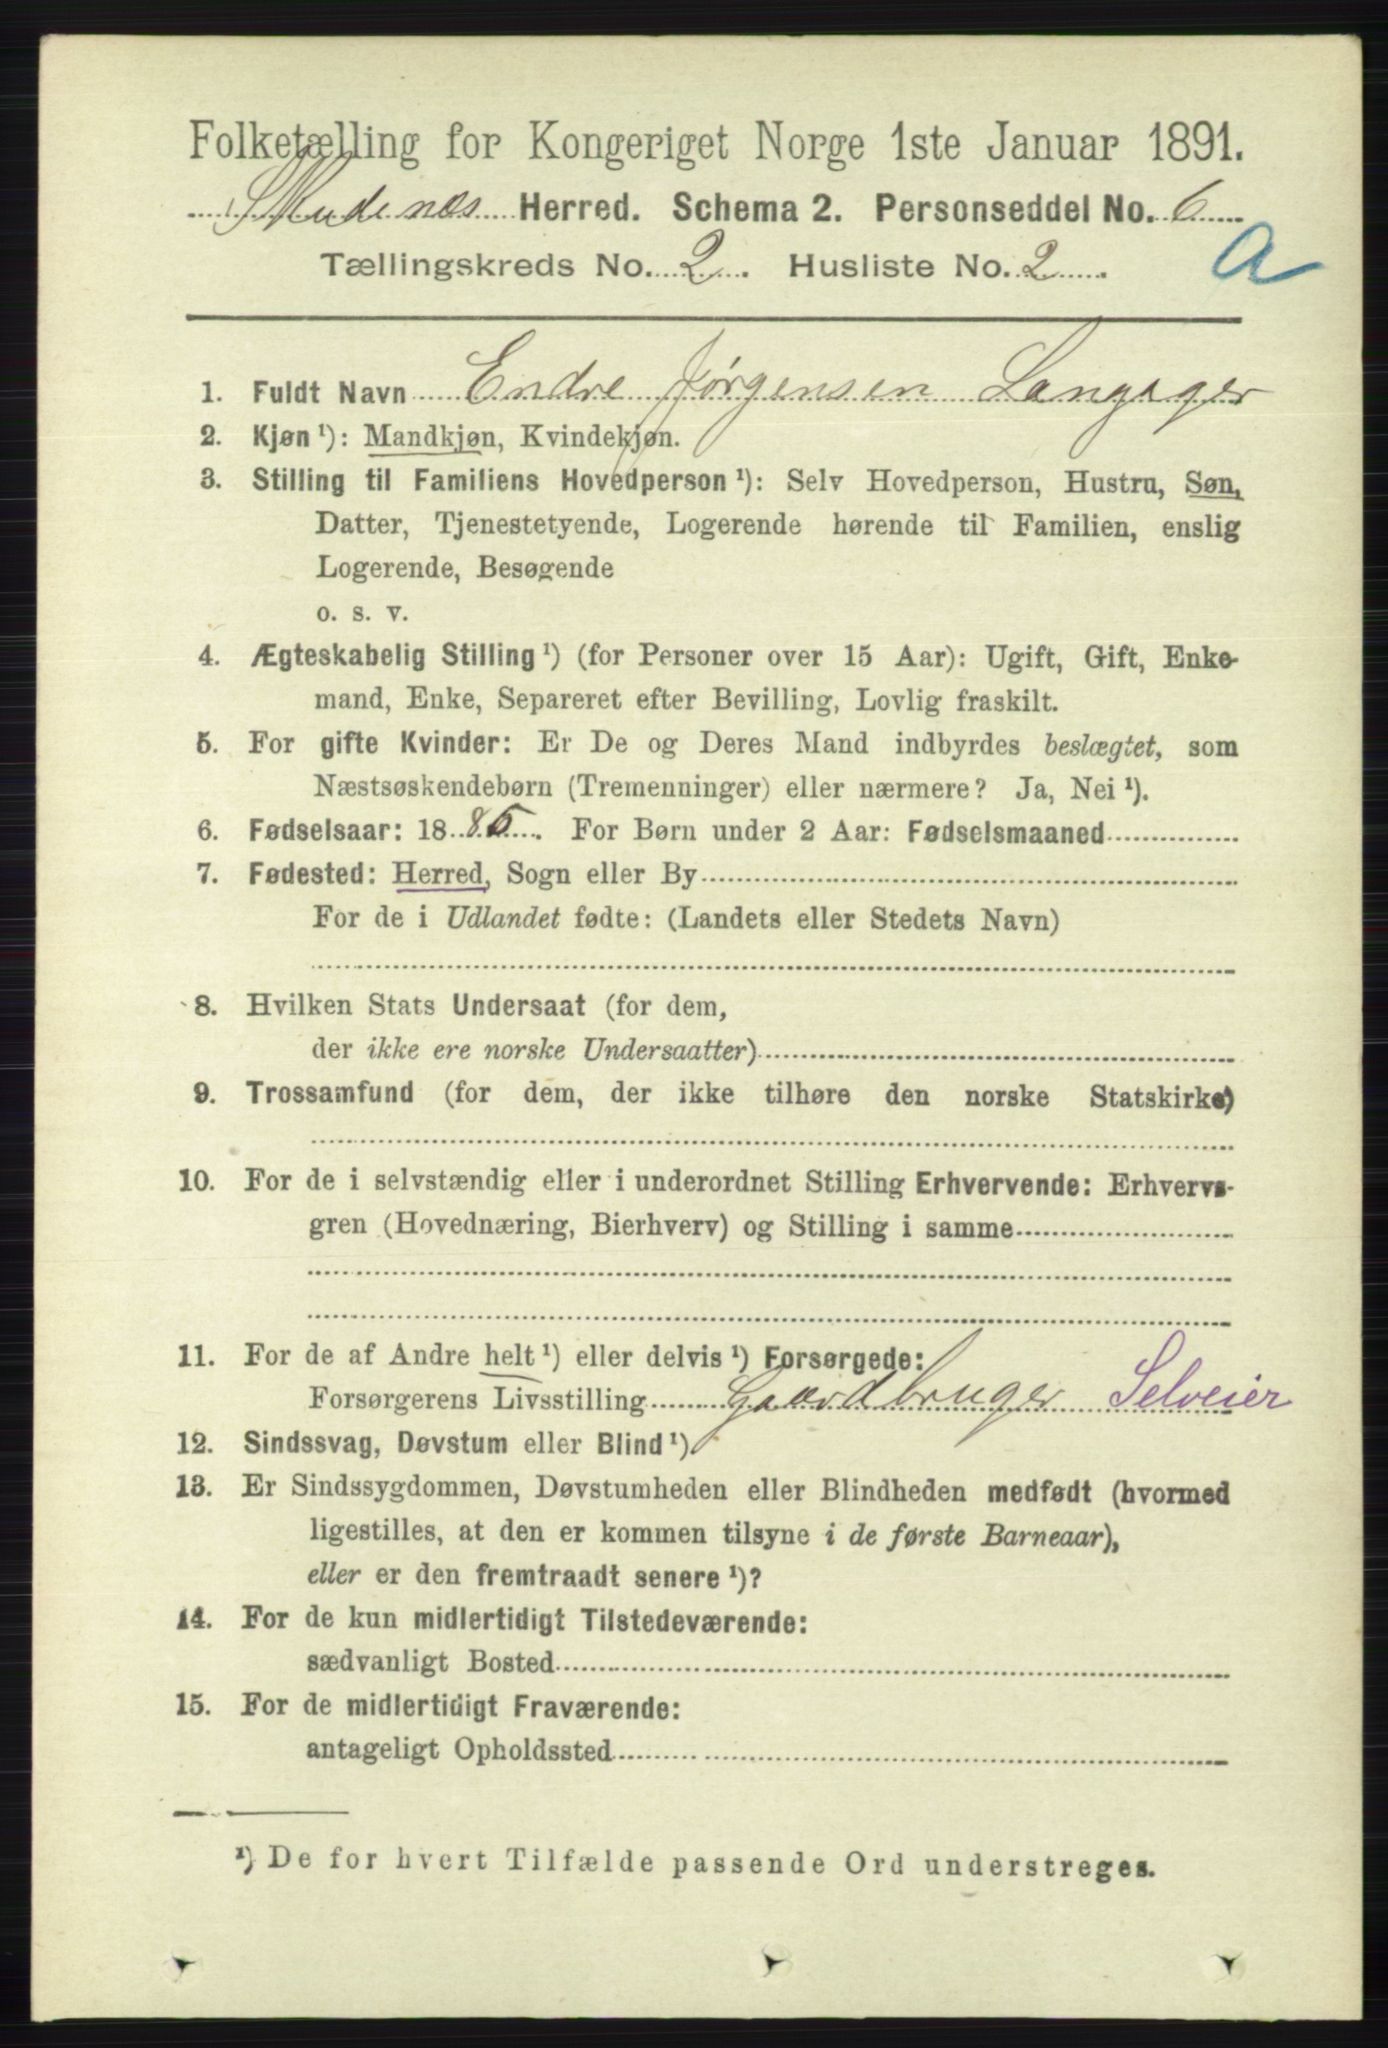 Folketælling for Kongeriget Norge 1ste Januar 1891.
Skudenæs Herred. Schema 2. Personseddel No. 6
Tællingskreds No. 2. Husliste No. 2.
a
1. Fuldt Navn Endre Jørgensen Langager
2. Kjøn ¹): Mandkjøn, Kvindekjøn.
3. Stilling til Familiens Hovedperson ¹): Selv Hovedperson, Hustru, Søn,
Datter, Tjenestetyende, Logerende hørende til Familien, enslig
Logerende, Besøgende
o. s. v.
4. Ægteskabelig Stilling ¹) (for Personer over 15 Aar): Ugift, Gift, Enke-
mand, Enke, Separeret efter Bevilling, Lovlig fraskilt.
5. For gifte Kvinder: Er De og Deres Mand indbyrdes beslægtet, som
Næstsøskendebørn (Tremenninger) eller nærmere? Ja, Nei ¹).
6. Fødselsaar: 1886. For Børn under 2 Aar: Fødselsmaaned
7. Fødested: Herred, Sogn eller By
For de i Udlandet fødte: (Landets eller Stedets Navn)
8. Hvilken Stats Undersaat (for dem,
der ikke ere norske Undersaatter)
9. Trossamfund (for dem, der ikke tilhøre den norske Statskirke)
10. For de i selvstændig eller i underordnet Stilling Erhvervende: Erhvervs-
gren (Hovednæring, Bierhverv) og Stilling i samme
11. For de af Andre helt ¹) eller delvis ¹) Forsørgede:
Forsørgerens Livsstilling Gaardbruger Selveier
12. Sindssvag, Døvstum eller Blind ¹)
13. Er Sindssygdommen, Døvstumheden eller Blindheden medfødt (hvormed
ligestilles, at den er kommen tilsyne i de første Barneaar),
eller er den fremtraadt senere ¹)?
14. For de kun midlertidigt Tilstedeværende:
sædvanligt Bosted
15. For de midlertidigt Fraværende:
antageligt Opholdssted
¹) De for hvert Tilfælde passende Ord understreges.